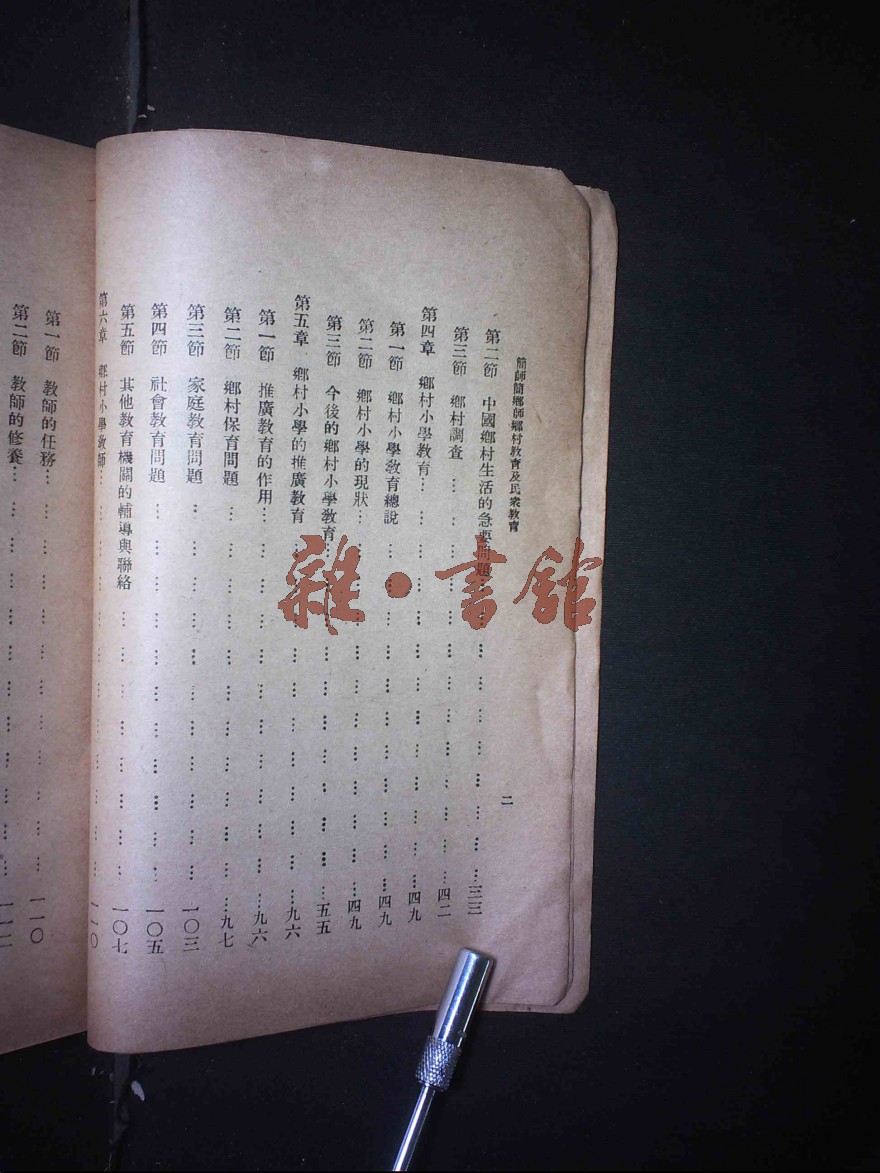 簡師簡鄉師鄉村教育及民衆教育
二
第二節 中國鄉村生活的急要問題…………三三
第三節 鄉村調查…………四二
第四章 鄉村小學教育…………四九
第一節 鄉村小學教育總說…………四九
第二節 鄉村小學的現狀…………四九
第三節 今後的鄉村小學教育…………五五
第五章 鄉村小學的推廣教育…………九六
第一節 推廣教育的作用…………九六
第二節 鄉村保育問題…………九七
第三節 家庭教育問題…………一〇三
第四節 社會教育問題…………一〇五
第五節 其他教育機關的輔導與聯絡…………一〇七
第六章 鄉村小學教師…………一一〇
第一節 教師的任務…………一一〇
第二節 教師的修養…………
雜·書館